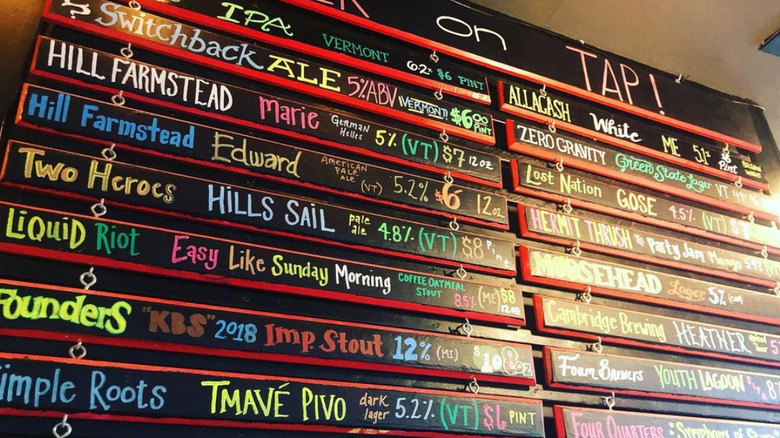 on TAP!
IPA VERMONT 6.2% $6 PINT
Switchback ALE 5% ABV VERMONT! $6.00 PINT
HILL FARMSTEAD Marie GERMAN Helles 5% (VT) $7 12oz
Hill Farmstead Edward AMERICAN PALE ALE (VT) 5.2% $6 12oz
Two Heroes HILLS SAIL pale ale 4.8% (VT) $8 Pint
LIQUID Riot Easy Like Sunday Morning COFFEE OATMEAL STOUT 8.5% (ME) $8
Founders "KBS" 2018 Imp. Stout 12% (MI) $10 8oz
Simple Roots TMAVÉ PIVO dark lager 5.2% (VT) $6 PINT
ALLAGASH White ME 5.1% $6 Pint
ZERO GRAVITY Green State Lager VT
Lost Nation GOSE 4.5% (VT)
HERMIT THRUSH Party Jam Mango
MOOSEHEAD Lager 5%
Cambridge Brewing HEATHER
Foam Brewers YOUTH LAGOON
FOUR QUARTERS Symphony of